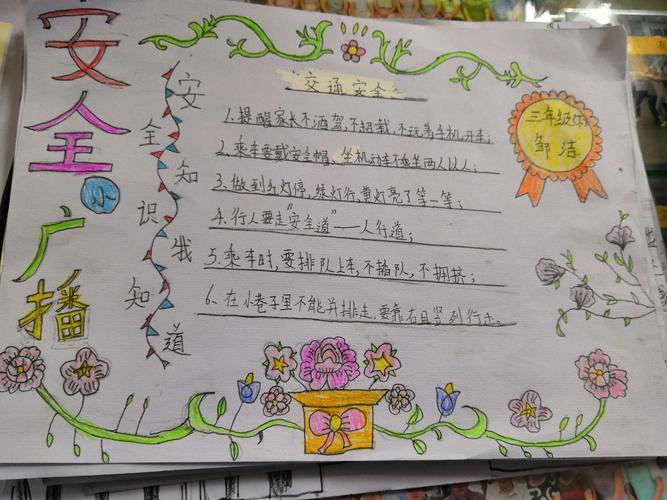 安全小广播
安全知识我知道
交通安全
1.提醒家长不酒驾,不超载,不玩着手机开车;
2.乘车要戴安全帽、坐机动车不乘坐两人以
3.做到红灯停,绿灯行,黄灯亮了等一等;
4.行人要走"安全道"——人行道;
5.乘车时,要排队上车,不插队,不拥挤;
6.在小巷子里不能并排走,要靠右且竖列行走。
三年级
邹洁